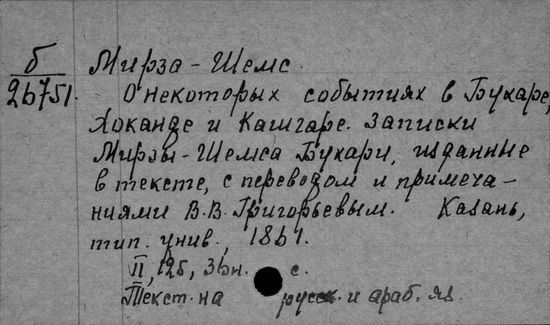 б
26751.
Мирза-Шемс.
О некоторых событиях в Бухаре,
Хоканде и Кашгаре. Записки
Мирзы-Шемса Бухари, изданные
в тексте, с переводом и примеча-
ниями В.В. Григорьевым. Казань,
тип. унив., 1861.
II, 125, 36н. с.
Текст на русск. и араб. яз.